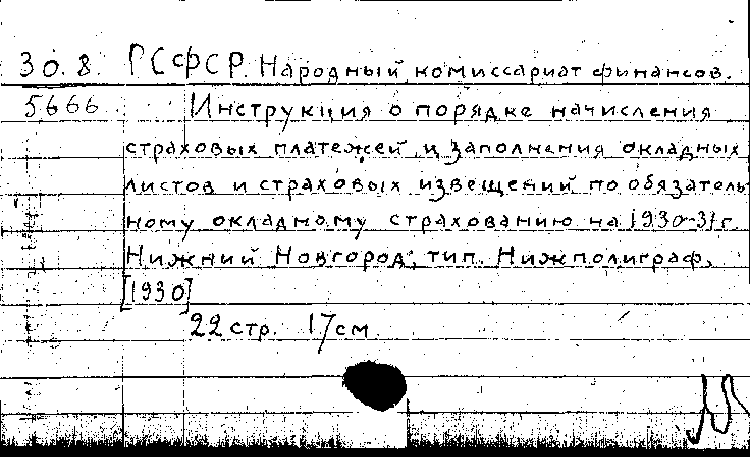 30.8. РСФСР. Народный комиссариат финансов.
5666 Инструкция о порядке начисления
страховых платежей и заполнения окладных
листов и страховых извещений по обязатель
ному окладному страхованию на 1930-31 г.
Нижний Новгород, тип. Нижполиграф,
[1930]
22 стр. 17 см